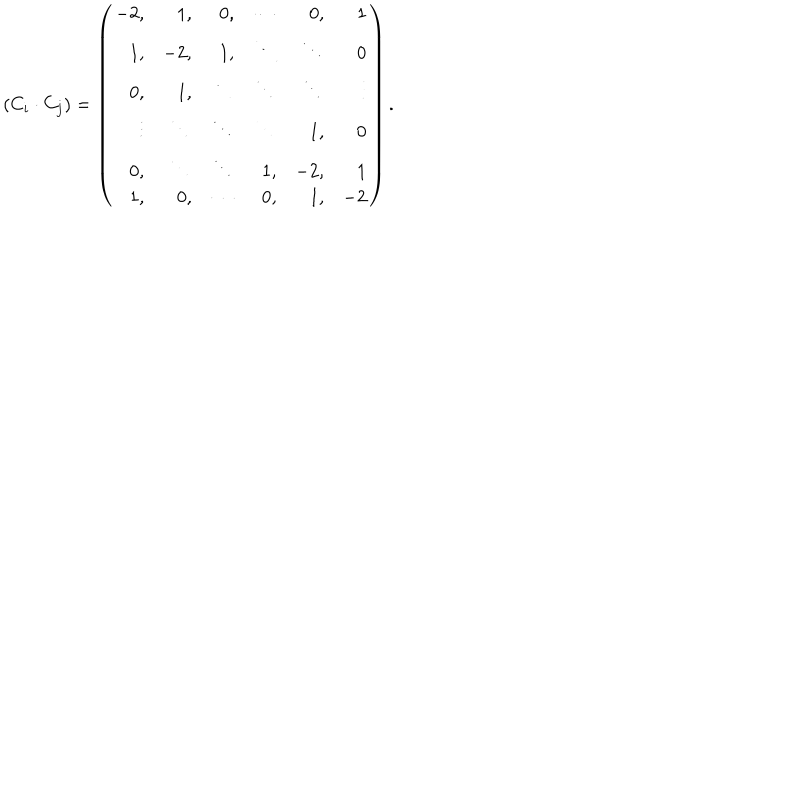 (C_i · C_j) = \begin{pmatrix} -2, & 1, & 0, & \cdots & 0, & 1 \\ 1, & -2, & 1, & \ddots & \ddots & 0 \\ 0, & 1, & \ddots & \ddots & \ddots & \vdots \\ \vdots & \ddots & \ddots & \ddots & 1, & 0 \\ 0, & \ddots & \ddots & 1, & -2, & 1 \\ 1, & 0, & \cdots & 0, & 1, & -2 \end{pmatrix}.